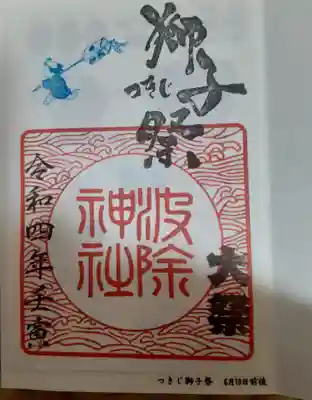 獅子祭
つきじ
波除
神社
大祭
令和四年壬寅
つきじ獅子祭 6月10日前後